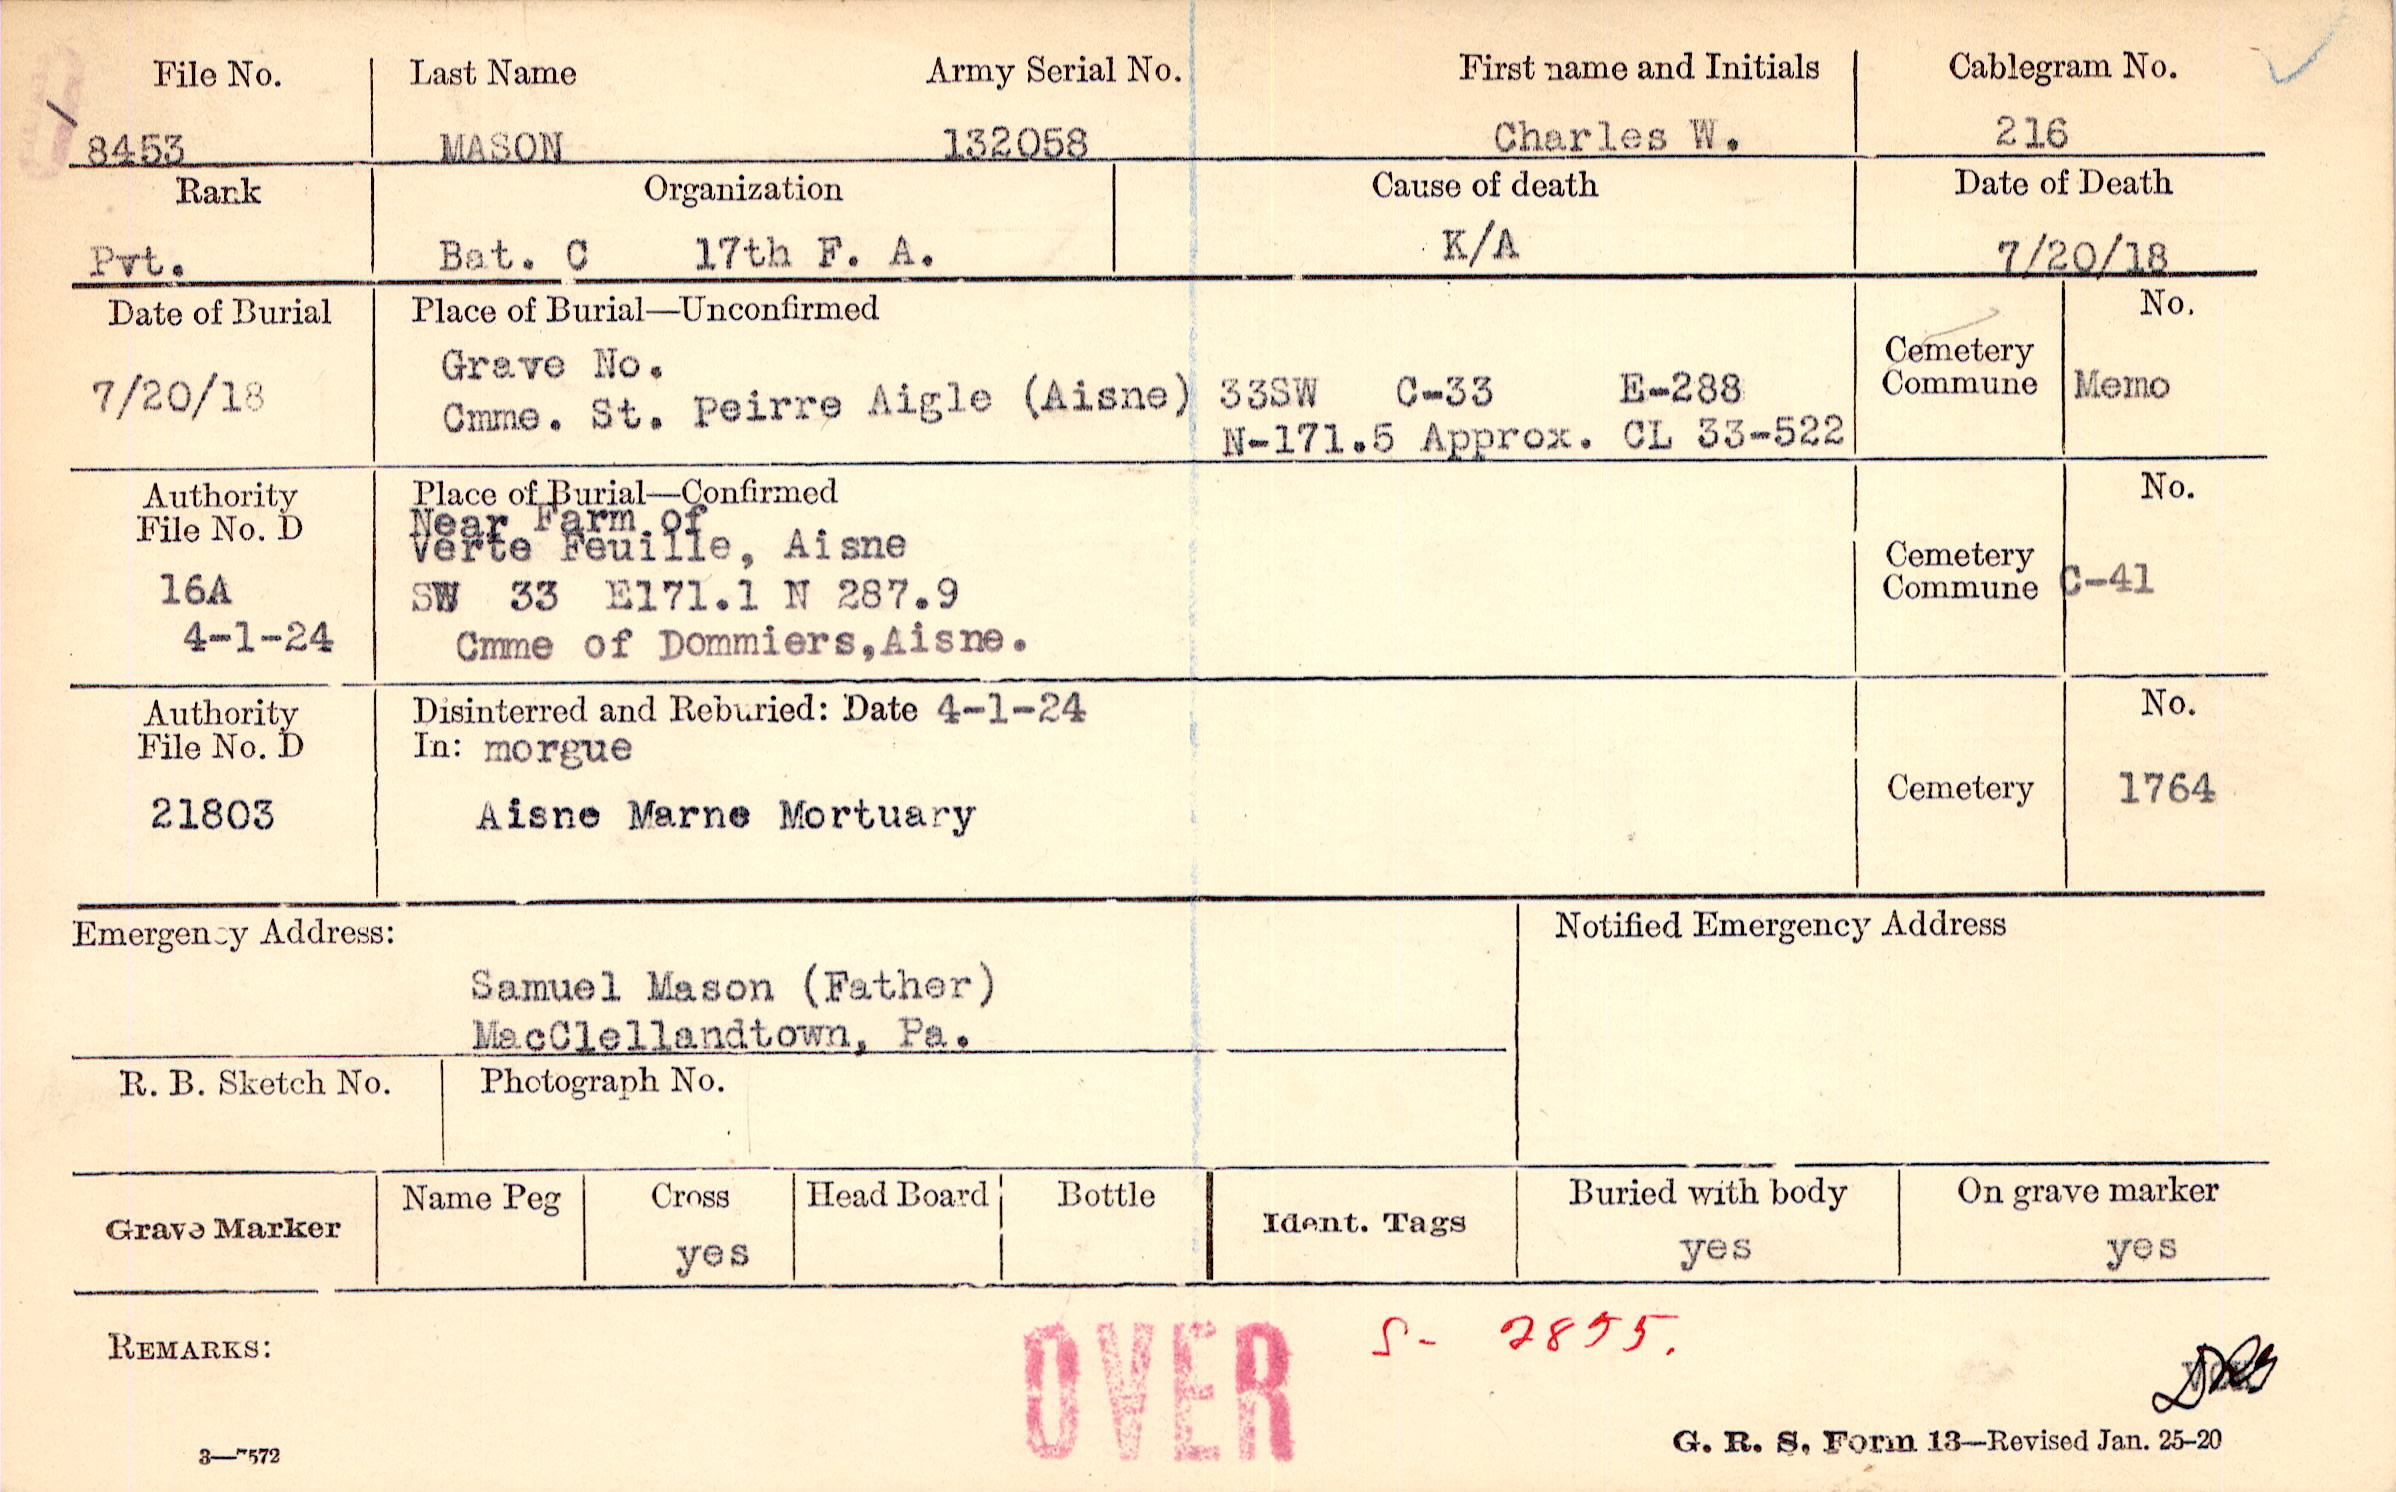 File No. Last Name Army Serial No. First name and Initials Cablegram No.
8453 MASON 132058 Charles W. 216
Rank Organization Cause of death Date of Death
Pvt. Bat. C 17th F. A. K/A 7/20/18
Date of Burial Place of Burial—Unconfirmed No.
Grave No. Cemetery
7/20/18 Cmme. St. Peirre Aigle (Aisne) 33SW C-33 E-288 Commune Memo
N-171.5 Approx. CL 33-522
Authority Place of Burial—Confirmed No.
File No. D Near Farm of
Verte Feuille, Aisne Cemetery
16A SW 33 E171.1 N 287.9 Commune C-41
4-1-24 Cmme of Dommiers,Aisne.
Authority Disinterred and Reburied: Date 4-1-24 No.
File No. D In: morgue
21803 Aisne Marne Mortuary Cemetery 1764
Emergency Address: Notified Emergency Address
Samuel Mason (Father)
MacClellandtown, Pa.
R. B. Sketch No. Photograph No.
Grave Marker Name Peg Cross Head Board Bottle Ident. Tags Buried with body On grave marker
yes yes yes
REMARKS: OVER S- 2855.
3—7572 G. R. S. Form 13—Revised Jan. 25-20